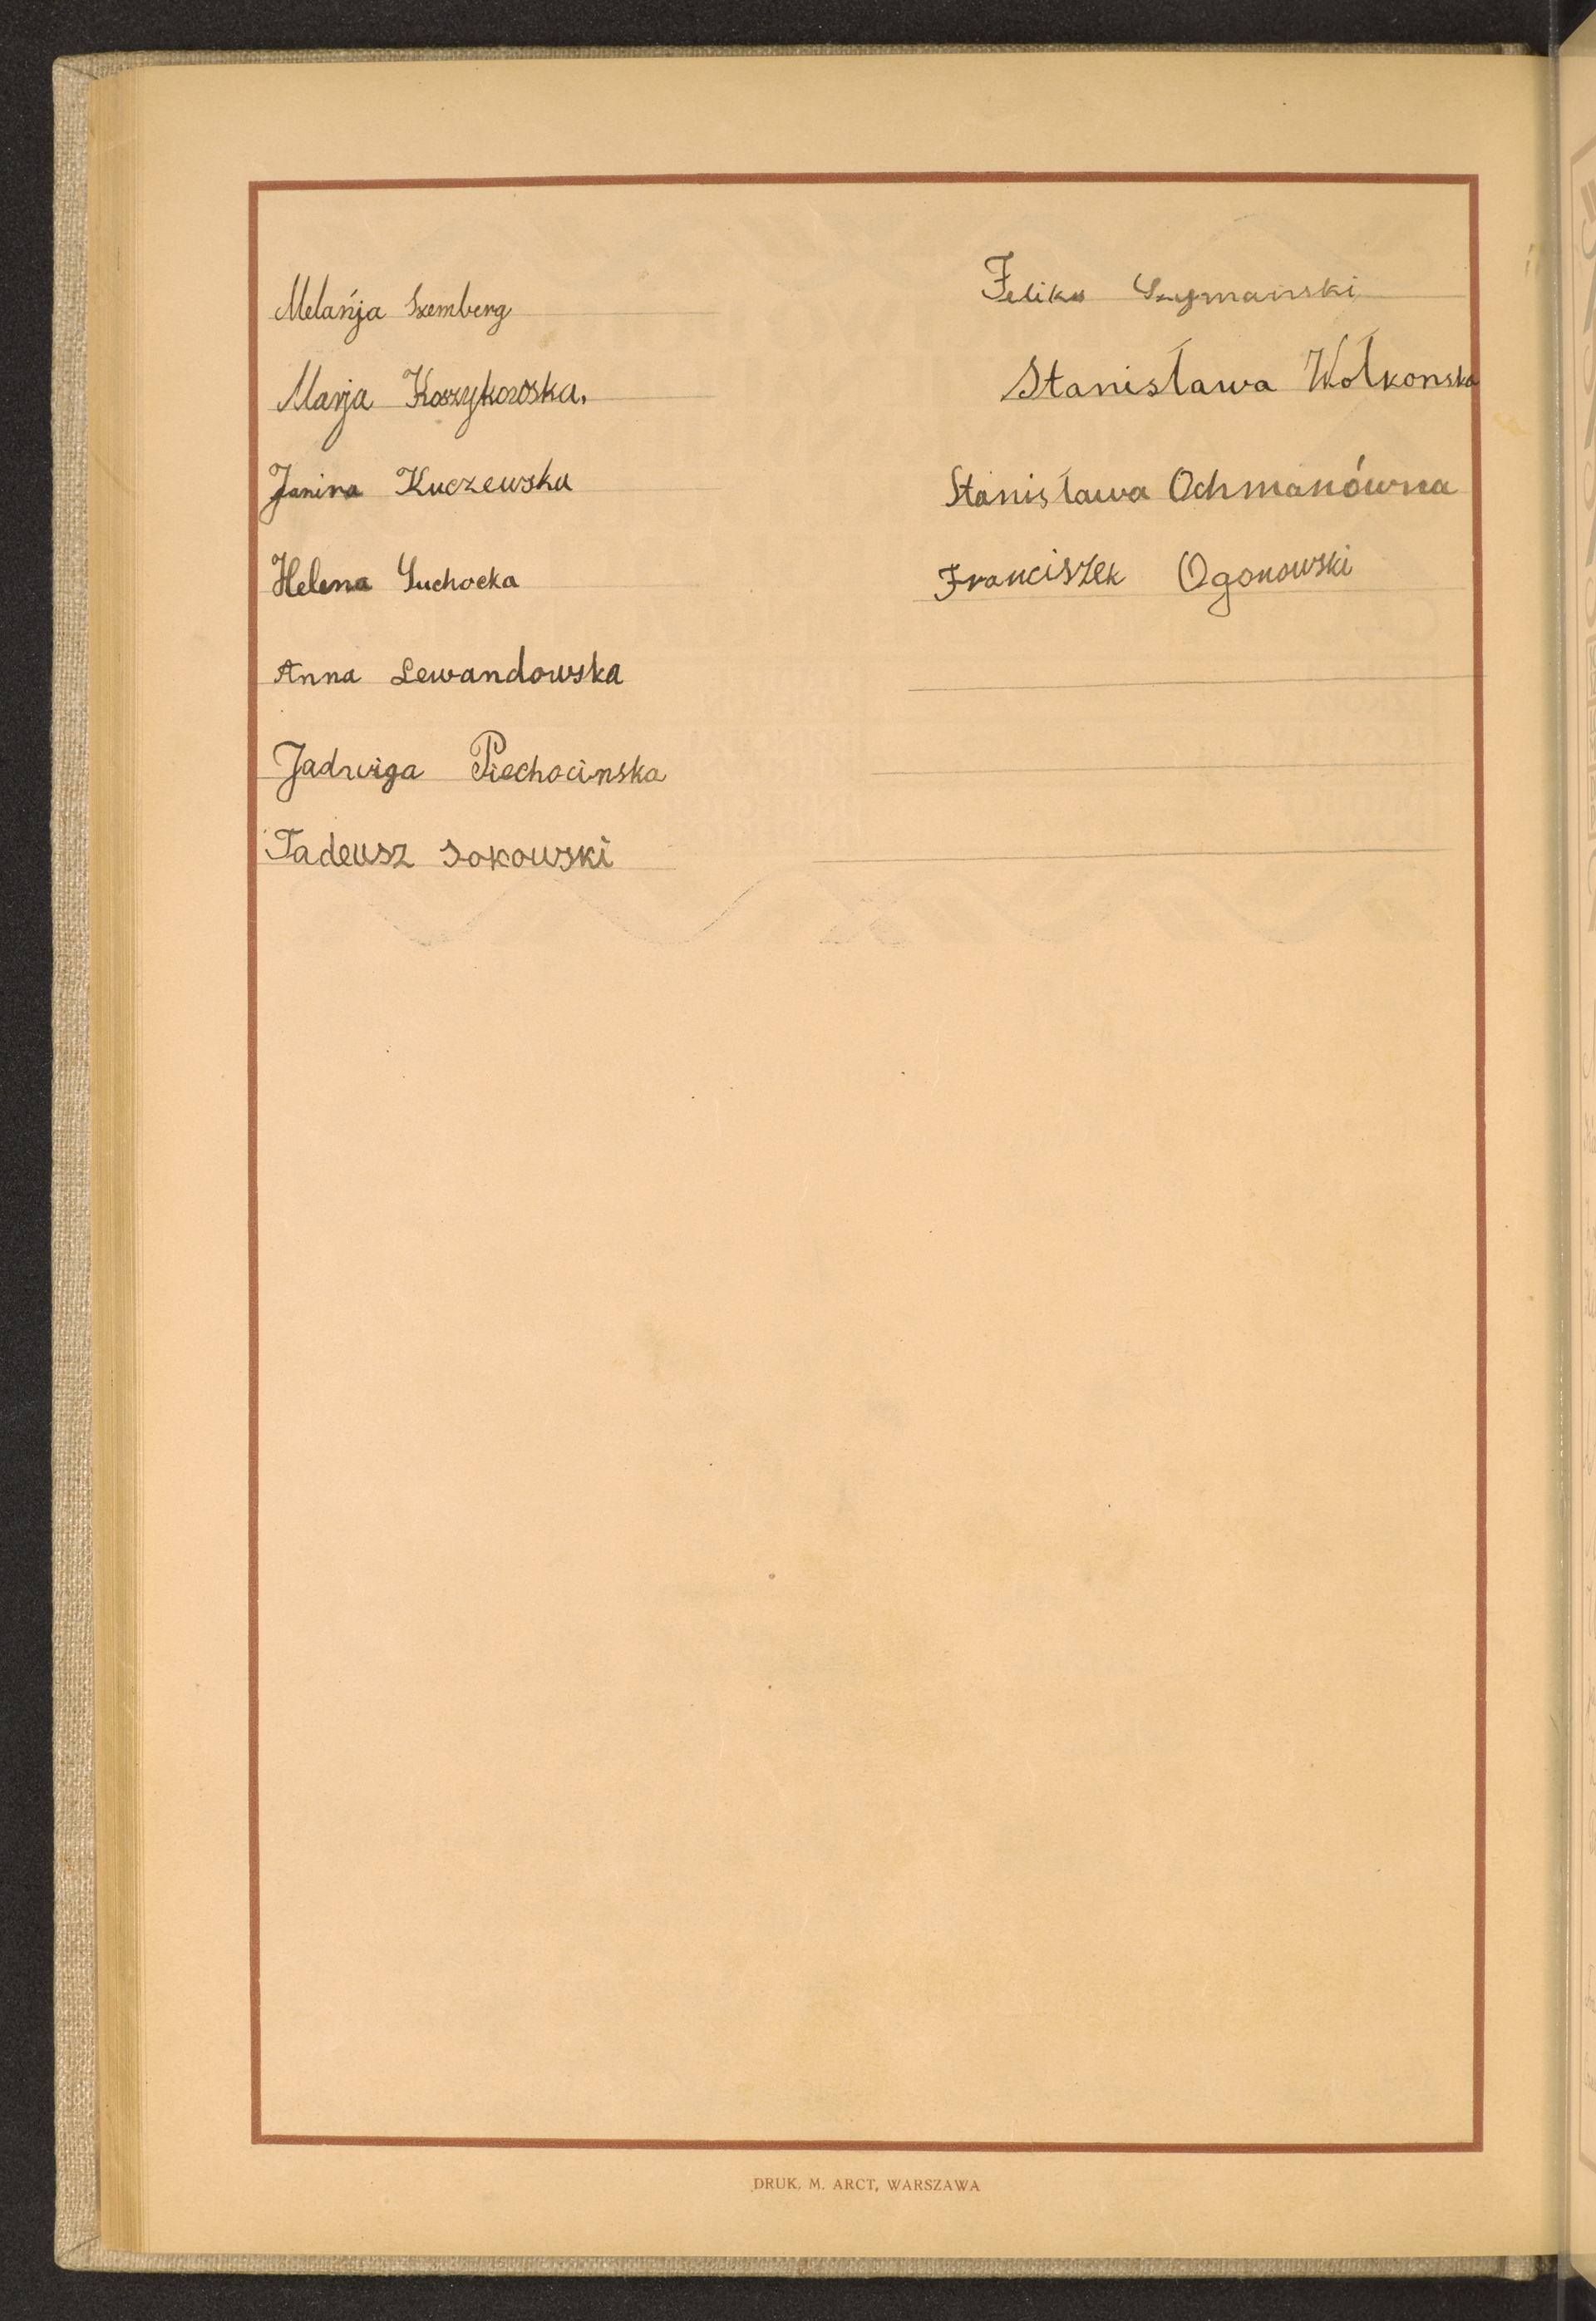 Melańja Szemberg
Marja Koszykowska.
Janina Kuczewska
Helena Suchocka
Anna Lewandowska
Jadwiga Piechocinska
Tadeusz Sokowski
Feliks Szymański
Stanisława Wołkonska
Stanisława Ochmanówna
Franciszek Ogonowski
DRUK. M. ARCT, WARSZAWA